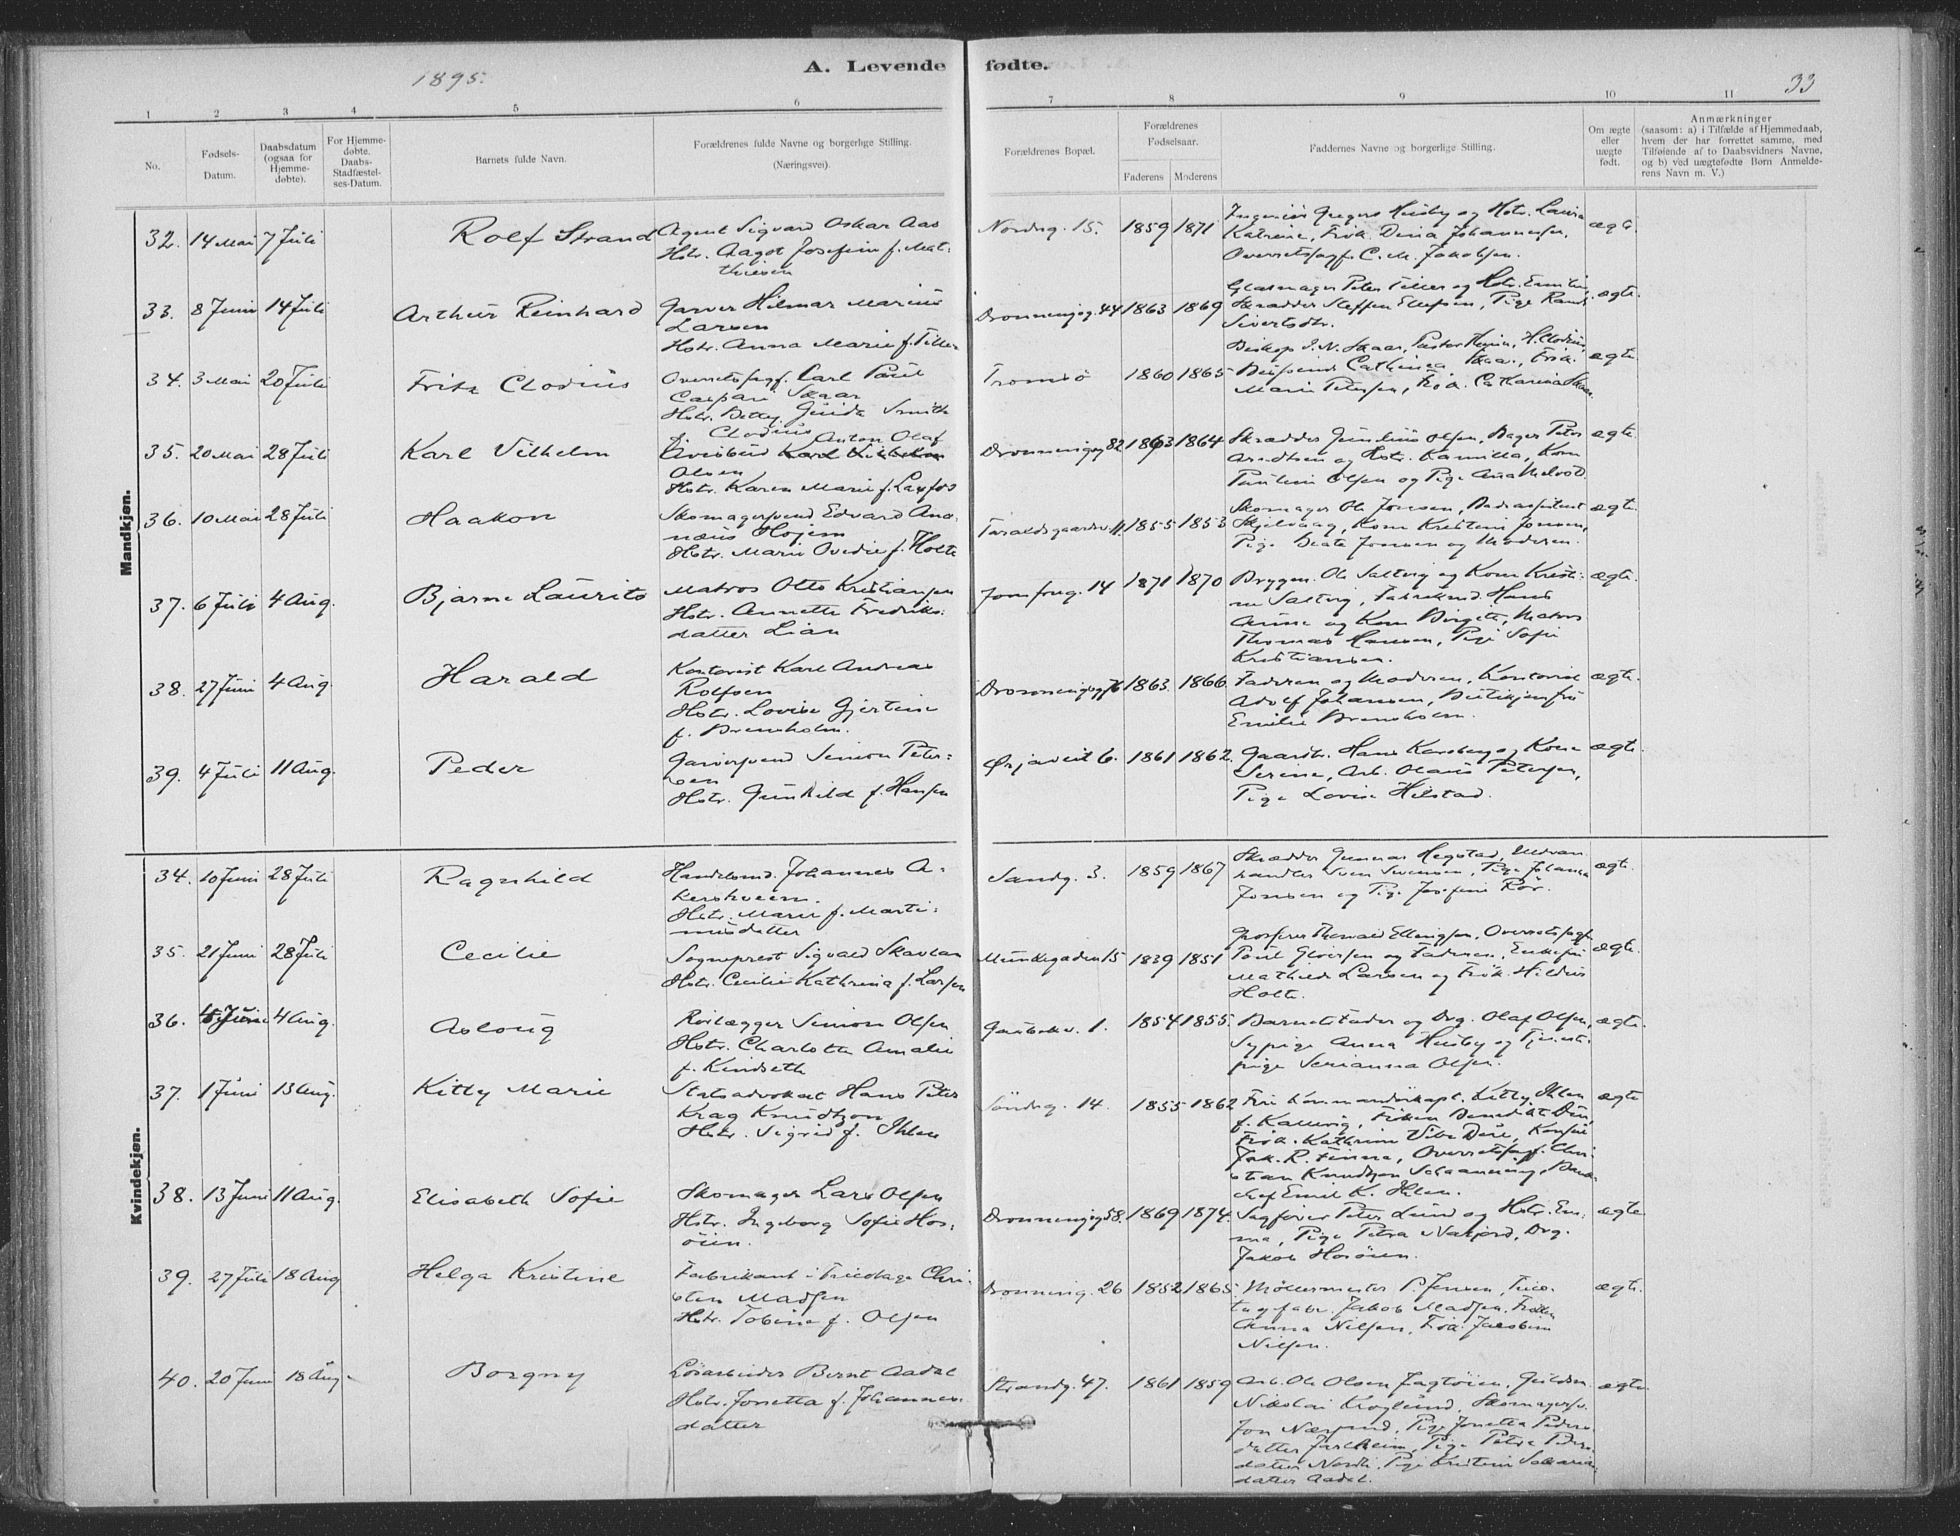 1895.
A. Levende fødte.
33
1 2 3 4 5 6 7 8 9 10 11
No.
Fødsels-Datum.
Daabsdatum (ogsaa for Hjemme-døbte).
For Hjemme-døbte. Daabs-Stadfæstel-ses-Datum.
Barnets fulde Navn.
Forældrenes fulde Navne og borgerlige Stilling. (Næringsvei).
Forældrenes Bopæl.
Forældrenes Fødselsaar.
Faderens Moderens
Faddernes Navne og borgerlige Stilling.
Om ægte eller uægte født.
Anmærkninger
(saasom: a) i Tilfælde af Hjemmedaab, hvem der har forrettet samme, med Tilføiende af to Daabsvidners Navne, og b) ved uægtefødte Børn Anmelde-rens Navn m. V.)
Mandkjøn.
32. 14 Mai 7 Juli Rolf Strand
Agent Sigvard Oskar Aas
Hstr. Aagot Josefine f. Mat-
thiesen
Nordreg. 15. 1859 1871
Ingeniør Gregers Husby og Hstr. Laura
Katrine, Frøk. Dina Johannesen,
Overretssagf. C. M. Jakobsen.
ægte.
33. 8 Juni 14 Juli Arthur Reinhard
Garver Hilmar Marius
Larsen
Hstr. Anna Marie f. Tiller
Dronningsg. 44 1863 1869
Glasmager Peter Tiller og Hstr. Emilie
Skrædder Steffen Ellefsen, Pige Randi
Sivertsdtr.
ægte.
34. 3 Mai 20 Juli Fritz Clodius
Overretssagf. Carl Paul
Caspari Skaar
Hstr. Betty Guida Smith
f. Clodius
Tromsø 1860 1865
Biskop J. N. Skaar, Pastor H. Clodius,
Cathinca Skaar, Frøk.
Marie Petersen, Frøk. Catharina Skaar.
ægte
35. 20 Mai 28 Juli Karl Vilhelm
Anton Olaf
Olsen
Hstr. Karen Marie f. Laxfos
Dronningsg 82 1863 1864
Skrædder Julius Olsen, Bager Peter
Arndtsen og Hstr. Kamilla, Kone
Pauline Olsen og Pige Ana Melvold.
ægte
36. 10 Mai 28 Juli Haakon
Skomagersvend Edvard Ana-
nius Højem
Hstr. Marie Ovedie f. Holte
Taraldsgaardsv. 11. 1855 1853
Skomager Ole Jonsen,
Skjelvaag, Kone Kristine Jonsen,
Pige Beate Jonsen og Moderen.
ægte.
37. 6 Juli 4 Aug. Bjarne Laurits
Matros Otto Kristiansen
Hstr. Annette Fredriks-
datter Lian
Jomfrug. 14 1871 1870
Bryggm. Ole Saltvig og Kone Kristi-
ne Saltvig, Fabrikarb. Hans
Aune og Kone Birgitte, Matros
Thomas Hansen, Pige Sofie
Kristiansen.
ægte.
38. 27 Juni 4 Aug. Harald
Kontorist Karl Andreas
Rolfsen
Hstr. Lovise Gjertine
f. Brensholm.
Dronningsg 76 1863 1866
Faderen og Moderen, Kontorist
Adolf Johansen, Butikjomfru
Emilie Brensholm.
ægte.
39. 4 Juli 11 Aug. Peder
Garversvend Simon Peter-
sen
Hstr. Gunhild f. Hansen
Ørjaveit 6. 1861 1862.
Gaardbr. Hans Karsberg og Kone
Serine, Arb. Olaus Petersen,
Pige Lovise Hilstad.
ægte.
Kvindekjøn.
34. 10 Juni 28 Juli Ragnhild
Handelsmd. Johannes A-
kershveem.
Hstr. Marie f. Marti-
nusdatter
Sandg. 3. 1859 1867
Skrædder Gunnar Hegstad, Uldvare-
handler Sven Svensen, Pige Johanna
Jonsen og Pige Josefine Rør.
ægte.
35. 21 Juni 28 Juli Cecilie
Sogneprest Sigvald Skavlan
Hstr. Cecilie Kathrina f. Larsen
Munkegaden 15 1839 1851
Grosserer Thorvald Ellingsen, Overretssagf.
Poul Giversen og Faderen, Enkefru
Mathilde Larsen og Frøk. Hildur
Holte.
ægte.
36. 5 Juni 4 Aug. Aslaug
Rørlægger Simon Olsen
Hstr. Charlotte Amalie
f. Kindseth
Gaubekv. 1. 1854 1855.
Barnets Fader og Drg. Olaf Olsen,
Sypige Anna Husby og Tjeneste-
pige Serianna Olsen.
ægte.
37. 1 Juni 13 Aug. Kitty Marie
Statsadvokat Hans Peter
Krag Knudtzon
Hstr. Sigrid f. Ihlen
Søndreg. 14. 1855 1862
Fru Kommandørkapt. Kitty Ihlen
f. Kallevig, Frøken Benedikte Due,
Frøk. Kathrine Vibe Due, Konsul
Jak. R. Finne, Overretssagf. Chri-
stian Knudtzon Schaanning, Bank-
chef Emil K. Ihlen.
ægte
38. 13 Juni 11 Aug. Elisabeth Sofie
Skomager Lars Olsen
Hstr. Ingeborg Sofie Hos-
øien.
Dronningsg 58. 1869 1874.
Sagfører Peter Lund og Hstr. Em-
ma, Pige Petra Nafjord, Drg.
Jakob Hosøien.
ægte
39. 27 Juli 18 Aug Helga Kristine
Fabrikant i Tricotage Chri-
sten Madsen
Hstr. Tobine f. Olsen
Dronning. 26 1852 1865.
Møllermester P. Jensen, Trico-
tagefabr. Jakob Madsen, Frøken
Anna Nilsen, Frøk. Jakobine
Nilsen.
ægte.
40. 20 Juni 18 Aug. Borgny
Løsarbeider Bernt Aadal
Hstr. Jonetta f. Johannes-
datter
Strandg. 47. 1861 1859
Arb. Ole Olsen Jagtøien, Guldsm.
Nikolai Kroglund, Skomagersv.
Jon Næssvend, Pige Jonetta Peders-
datter Jarlheim, Pige Petra Peders-
datter Nordli, Pige Kristine Sakarias-
datter Aadal.
ægte.